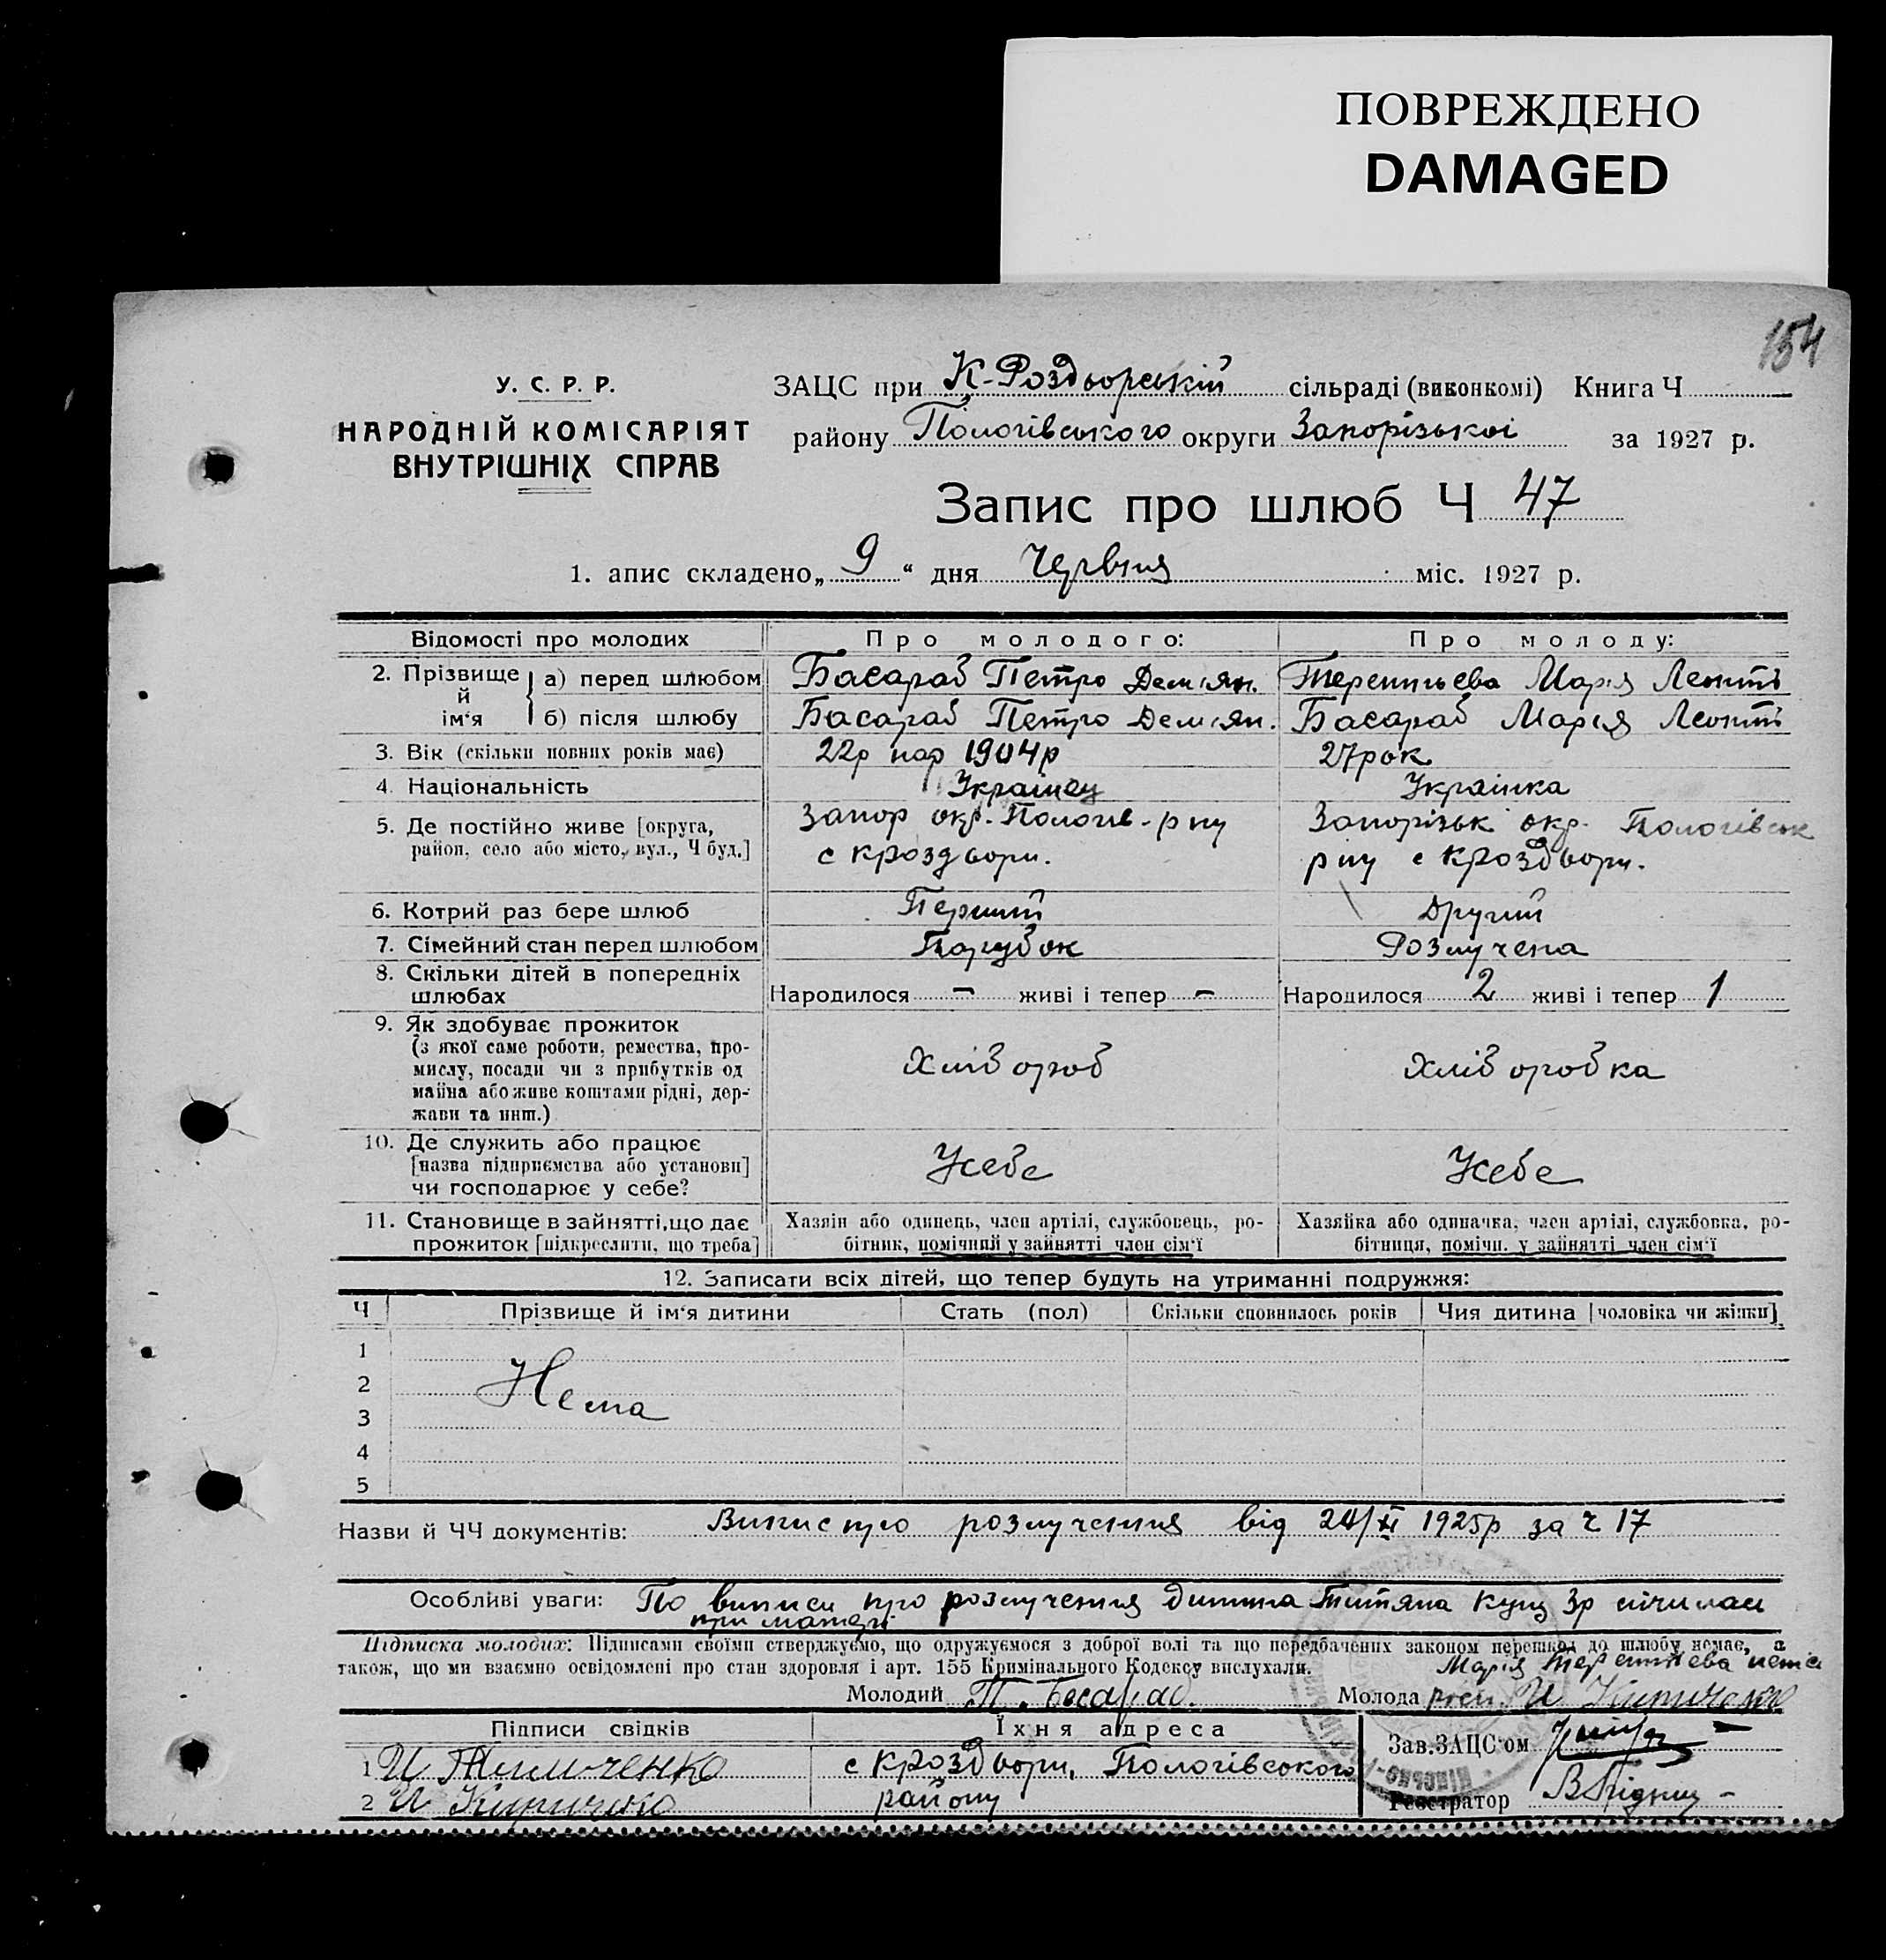 ПОВРЕЖДЕНО
DAMAGED
154
У. С. Р. Р.
НАРОДНІЙ КОМІСАРІЯТ
ВНУТРІШНІХ СПРАВ
ЗАЦС при К-Роздворській сільраді (виконкомі) Книга Ч
району Пологівського округи Запорізької за 1927 р.
Запис про шлюб Ч 47
1. апис складено „ 9 “ дня Червня міс. 1927 р.
Відомості про молодих
Про молодого:
Про молоду:
2. Прізвище й ім‘я
а) перед шлюбом
Басараб Петро Дем'ян.
Терентьева Марія Леонтів
б) після шлюбу
Басараб Петро Дем'ян.
Басараб Марія Леонтів
3. Вік (скільки повних років має)
22р нар 1904р
27рок
4. Національність
Українец
Українка
5. Де постійно живе [округа,
район, село або місто, вул., Ч буд.]
Запор окр. Пологів - рну
с Кроздвори.
Запорізьк окр. Пологівськ
рну с Кроздвори.
6. Котрий раз бере шлюб
Перший
Другий
7. Сімейний стан перед шлюбом
Парубок
Розлучена
8. Скільки дітей в попередніх
шлюбах
Народилося - живі і тепер -
Народилося 2 живі і тепер 1
9. Як здобуває прожиток
(з якої саме роботи, ремества, про-
мислу, посади чи з прибутків од
майна або живе коштами рідні, дер-
жави та инш.)
Хліб ороб
Хліб оробка
10. Де служить або працює
[назва підприємства або установи]
чи господарює у себе?
Усебе
Усебе
11. Становище в зайнятті, що дає
прожиток [підкреслити, що треба]
Хазяін або одинець, член артілі, службовець, ро-
бітник, помічний у зайнятті член сім‘ї
Хазяйка або одиначка, член артілі, службовка, ро-
бітниця, помічн. у зайнятті член сім‘ї
12. Записати всіх дітей, що тепер будуть на утриманні подружжя:
Ч
Прізвище й ім‘я дитини
Стать (пол)
Скільки сповнилось років
Чия дитина [чоловіка чи жінки]
1
2
Нема
3
4
5
Назви й ЧЧ документів: Випис про розлучення від 24/XI 1925р за ч 17
Особливі уваги: По виписи про розлучення дитина Титяна 3р
при матері
Підписка молодих: Підписами своїми стверджуємо, що одружуємося з доброї волі та що передбачених законом перешкод до шлюбу немає, а
також, що ми взаємно освідомлені про стан здоровля і арт. 155 Кримінального Кодексу вислухали.
Марія Терентьева
Молодий П. Басараб.
Молода
Підписи свідків
Їхня адреса
Зав.ЗАЦС‘ом
1
с Кроздвори, Пологівського
2
району
Реєстратор